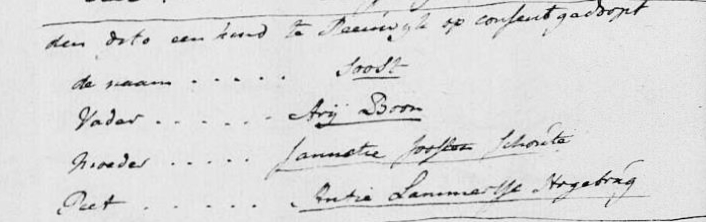 den dito een kind te Reeuwyk op consent gedoopt
de naam . . . . . Joost
Vader . . . . . . Arij Boon
Moeder . . . . . Jannetie Joosten Schoute
Peet . . . . . . Antie Lammertse Hogebrug